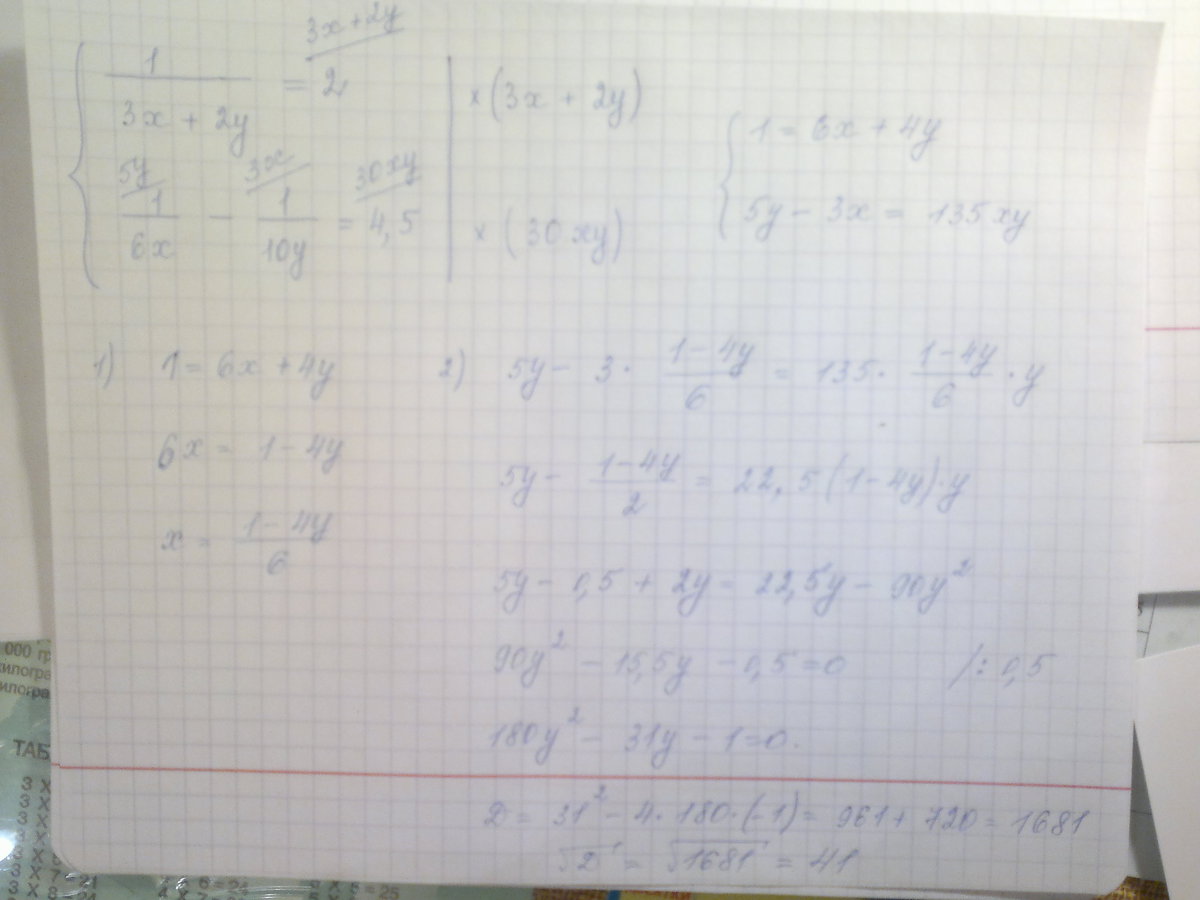 { 1/(3x + 2y) = 2 (3x + 2y | × (3x + 2y)
{ 1/6x (5y - 1/10y (3x = 4,5 (30xy | × (30xy)
{ 1 = 6x + 4y
{ 5y - 3x = 135xy
1) 1 = 6x + 4y
6x = 1 - 4y
x = (1 - 4y)/6
2) 5y - 3 · (1 - 4y)/6 = 135 · (1 - 4y)/6 · y
5y - (1 - 4y)/2 = 22,5(1 - 4y)·y
5y - 0,5 + 2y = 22,5y - 90y²
90y² - 15,5y - 0,5 = 0 /: 0,5
180y² - 31y - 1 = 0.
D = 31² - 4·180·(-1) = 961 + 720 = 1681
√D = √1681 = 41
000 гр
килогра
илогра
ТАБ
3 X
3 X
3 X
3 X
3 X 7 = 21